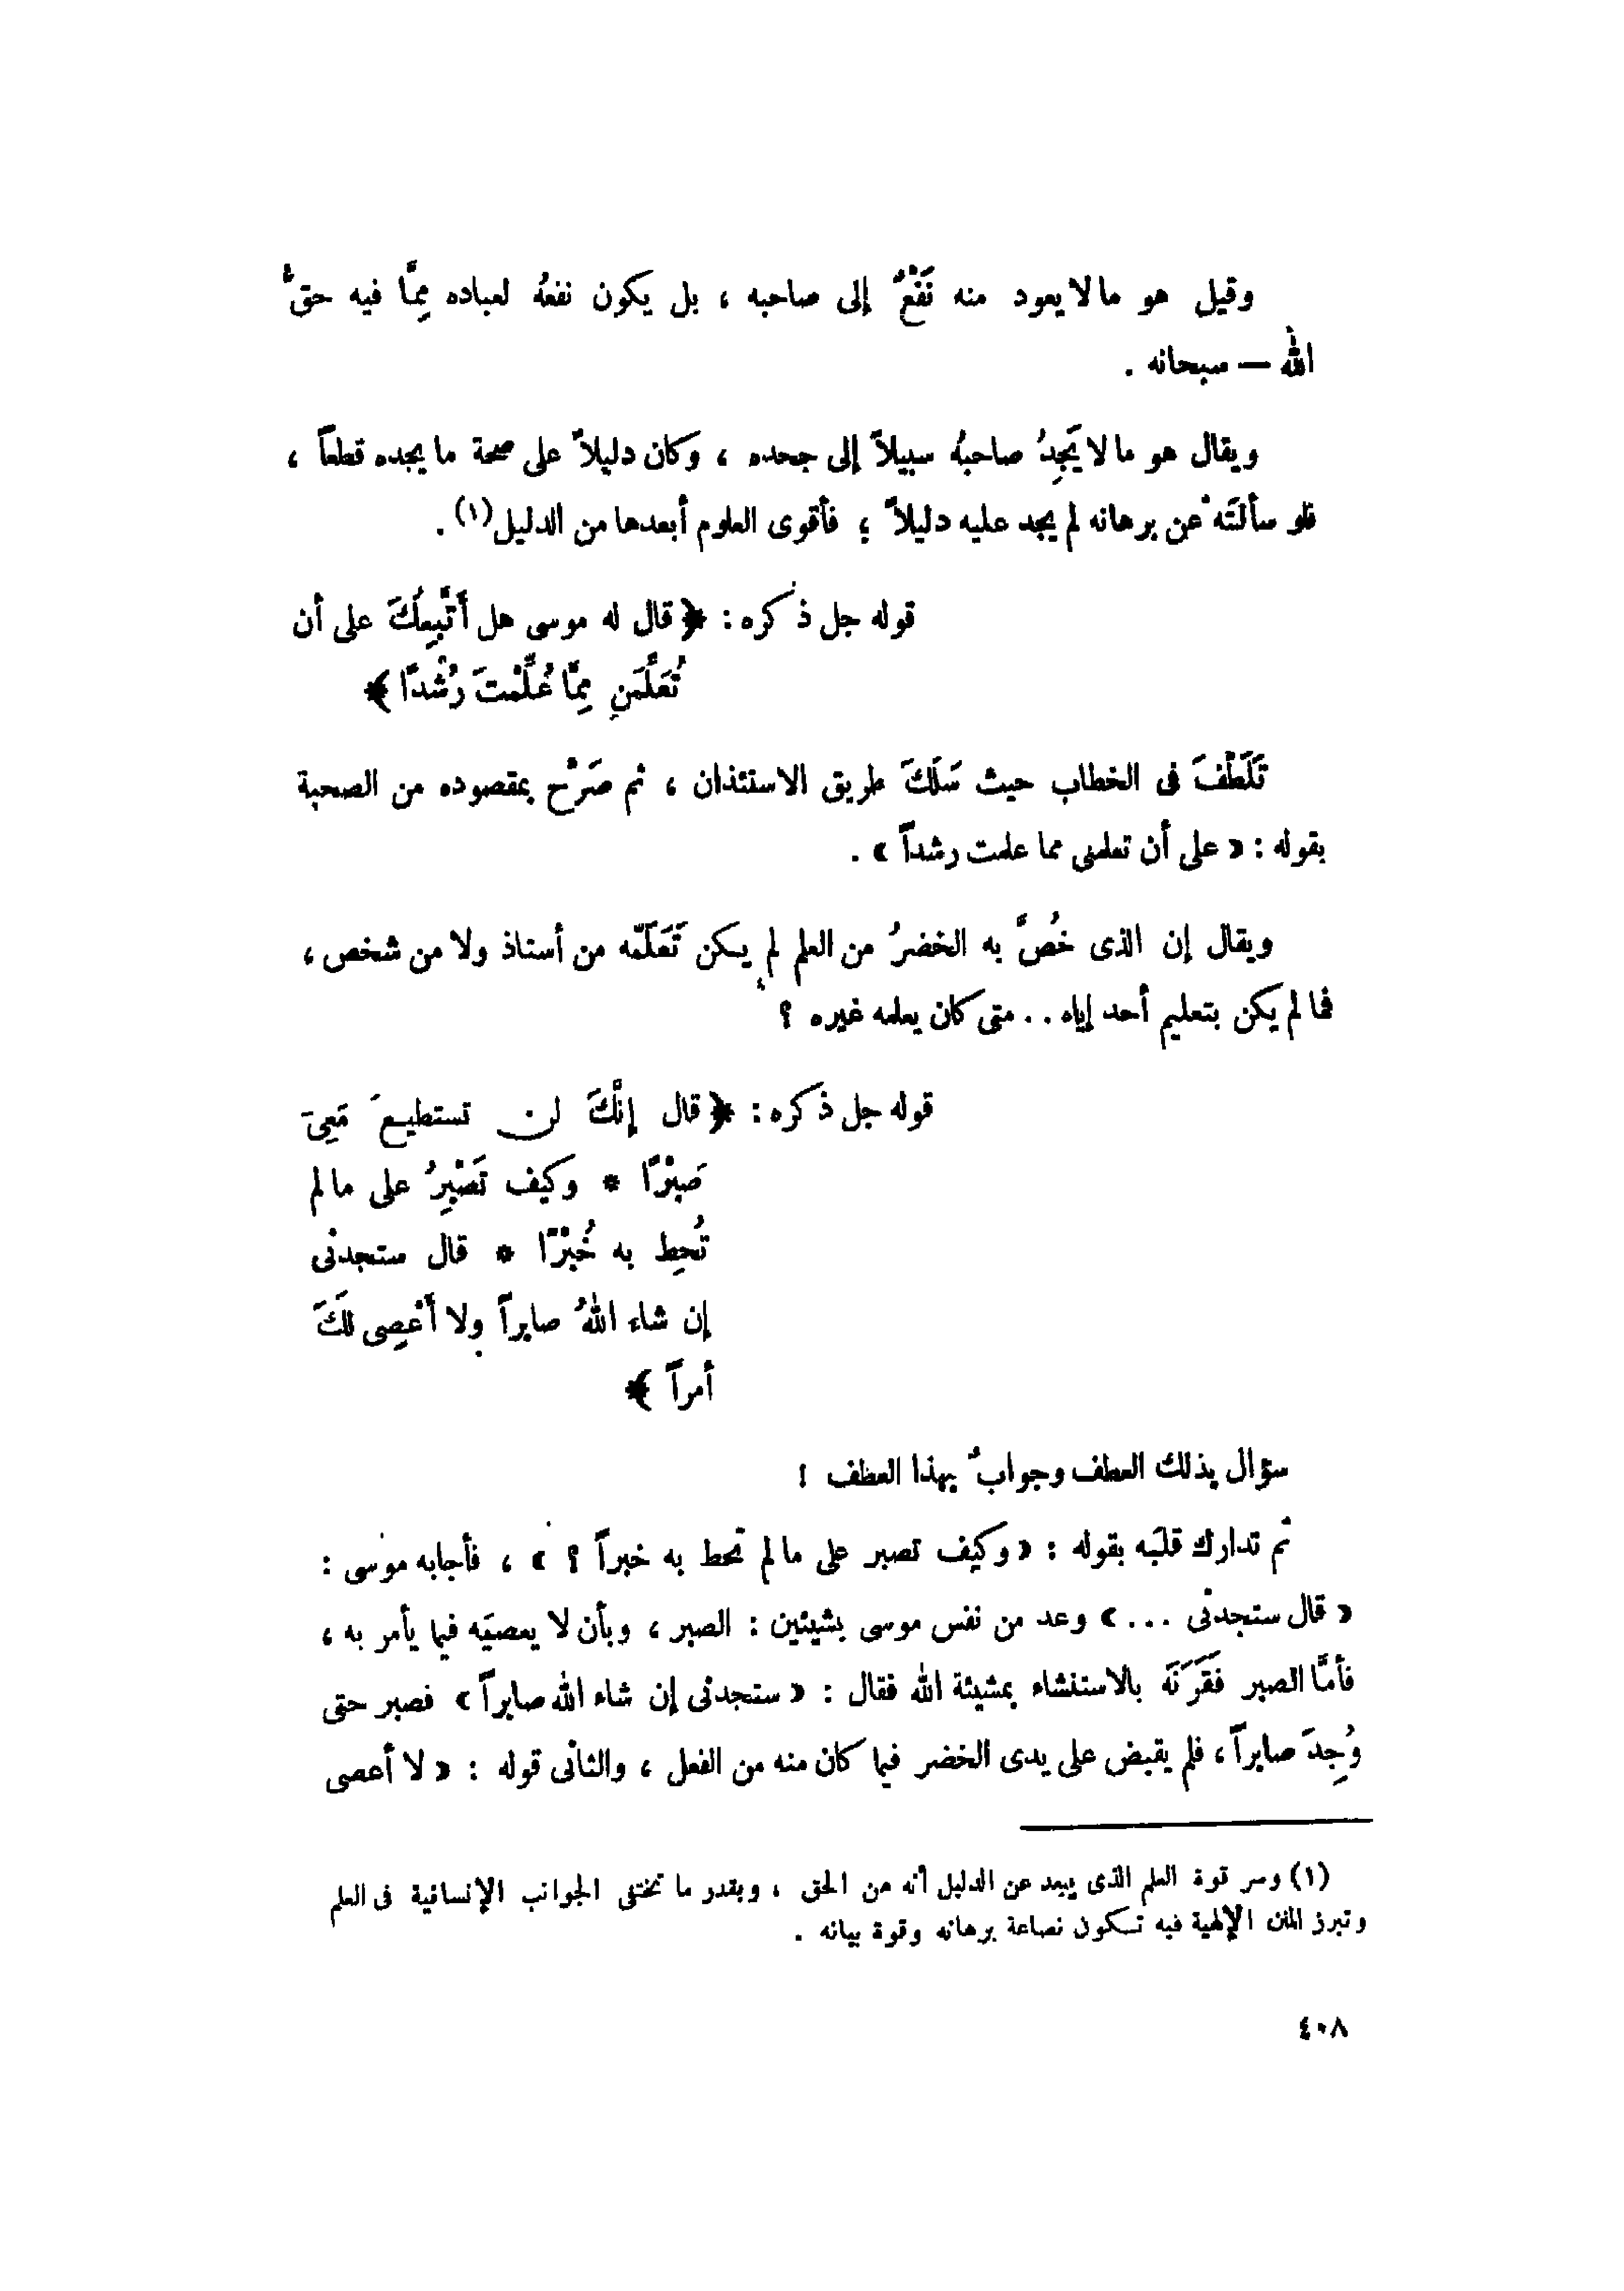 وقيل هو ما لا يعود منه نَفْعٌ إلى صاحبه ، بل يكون نفعُه لعباده مِمَّا فيه حقُّ
الله — سبحانه .
ويقال هو ما لا يَجِدُ صاحبُه سبيلاً إلى جحده ، وكان دليلاً على صحة ما يجده قطعاً ،
فلو سألتَه عن برهانه لم يجد عليه دليلاً ؛ فأقوى العلوم أبعدها من الدليل(١) .
قوله جل ذكره : ﴿ قال له موسى هل أَتَّبِعُكَ على أن
تُعَلِّمَنِ مِمَّا عُلِّمْتَ رُشْدًا ﴾
تَلَطَّفَ فى الخطاب حيث سَلَكَ طريق الاستئذان ، ثم صَرَّح بمقصوده من الصحبة
بقوله : « على أن تعلمنى مما علمت رشداً » .
ويقال إن الذى خُصَّ به الخضرُ من العلم لم يكن تَعَلَّمَه من أستاذ ولا من شخص ،
فما لم يكن بتعليم أحد إياه . . متى كان يعلمه غيره ؟
قوله جل ذكره : ﴿ قال إنَّكَ لن تستطيعَ مَعِىَ
صَبْرًا * وكيف تَصْبِرُ على ما لم
تُحِط به خُبْرًا * قال ستجدنى
إن شاء اللهُ صابراً ولا أَعْصِى لَكَ
أمراً ﴾
سؤال بذلك العطف وجوابٌ بهذا العطف !
ثم تدارك قلبَه بقوله : « وكيف تصبر على ما لم تحط به خبراً ؟ » ، فأجابه موسى :
« قال ستجدنى . . . » وعد من نفس موسى بشيئين : الصبر ، وبأن لا يعصيَه فيما يأمر به ،
فأمَّا الصبر فَقَرَنَه بالاستنشاء بمشيئة الله فقال : « ستجدنى إن شاء الله صابراً » فصبر حتى
وُجِدَ صابراً ، فلم يقبض على يدى الخضر فيما كان منه من الفعل ، والثانى قوله : « لا أعصى
(١) وسر قوة العلم الذى يبعد عن الدليل أنه من الحق ، وبقدر ما تختفى الجوانب الإنسانية فى العلم
وتبرز المنن الإلهية فيه تكون نصاعة برهانه وقوة بيانه .
٤٠٨